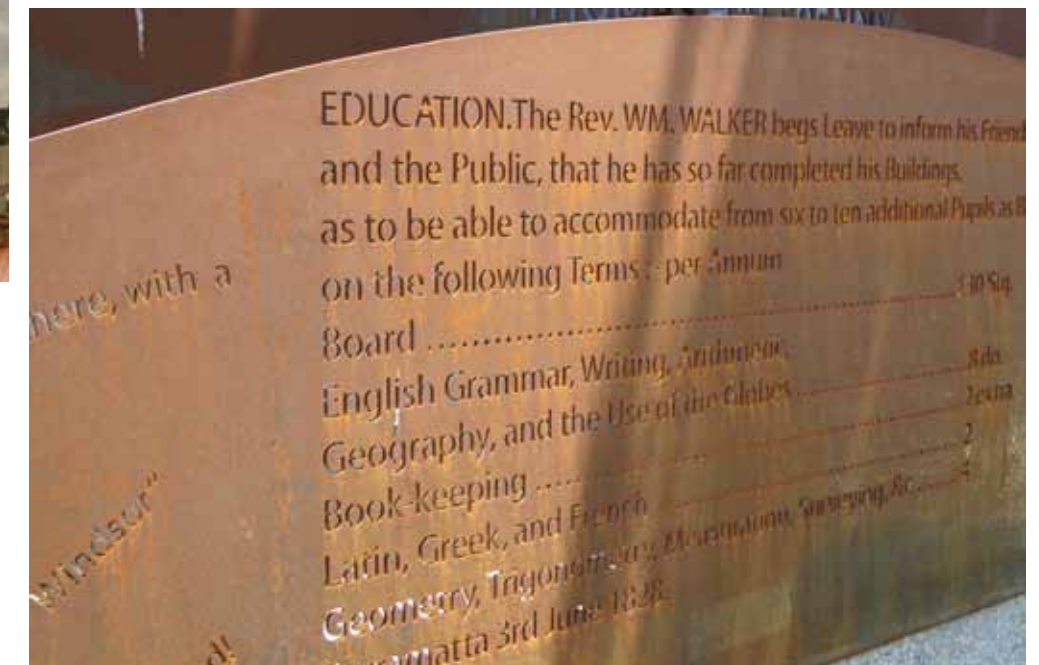 EDUCATION.The Rev. WM. WALKER begs Leave to inform his Friend
and the Public, that he has so far completed his Buildings,
as to be able to accommodate from six to ten additional Pupils as B
on the following Terms : per Annum
Board ........................................
English Grammar, Writing, Arithmetic,
Geography, and the Use of the Globes ................ 8 do.
Book-keeping ................................ 2 extra
Latin, Greek, and French ................ 2
Geometry, Trigonometry, Mensuration, Surveying, &c. ...... 4
matta 3rd June 1828.
here, with a
Windsor"
d!